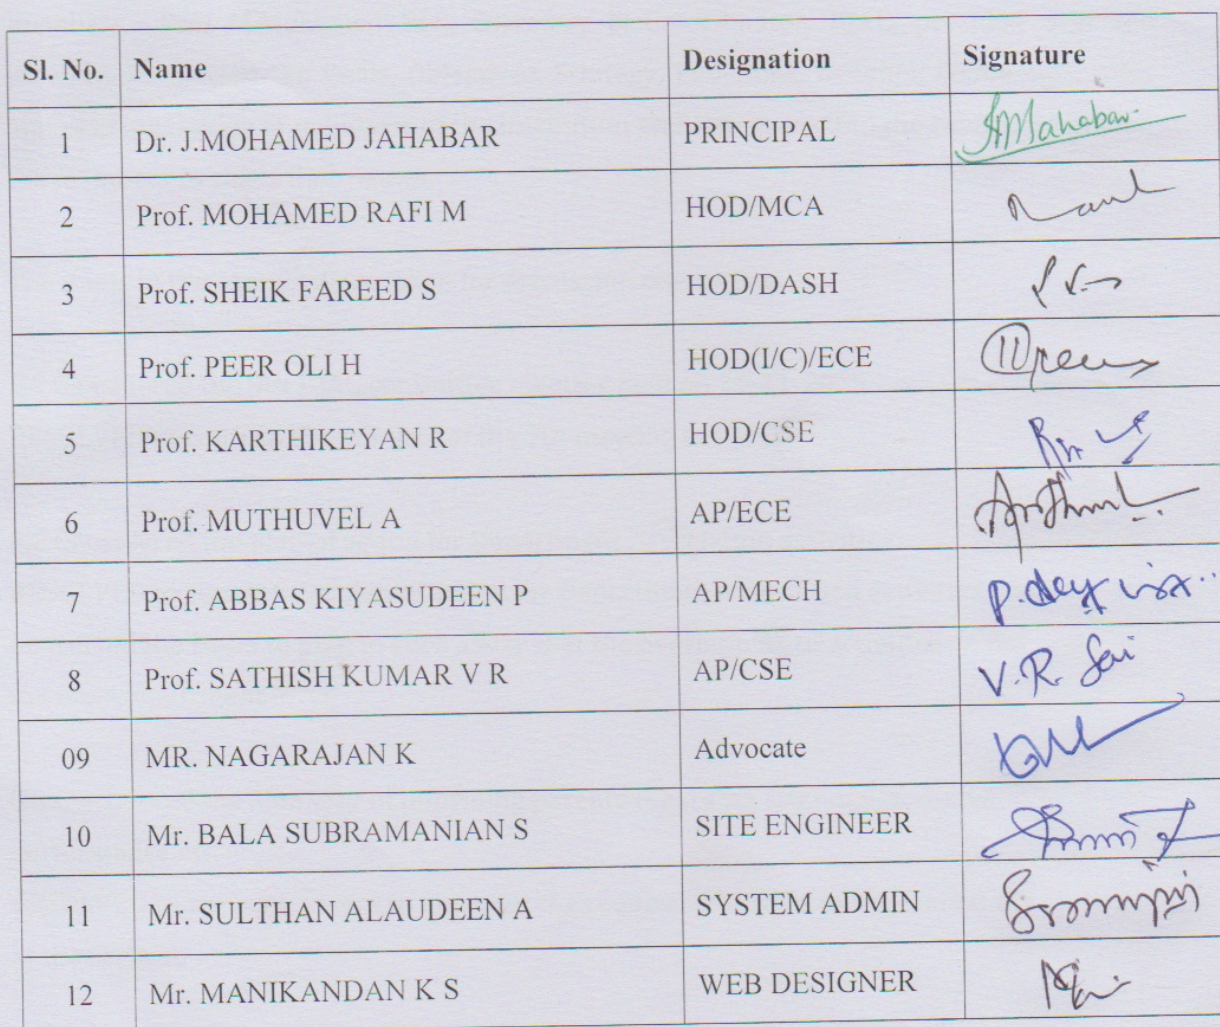 Sl. No. Name Designation Signature
1 Dr. J.MOHAMED JAHABAR PRINCIPAL JMahabar
2 Prof. MOHAMED RAFI M HOD/MCA
3 Prof. SHEIK FAREED S HOD/DASH
4 Prof. PEER OLI H HOD(I/C)/ECE
5 Prof. KARTHIKEYAN R HOD/CSE
6 Prof. MUTHUVEL A AP/ECE
7 Prof. ABBAS KIYASUDEEN P AP/MECH
8 Prof. SATHISH KUMAR V R AP/CSE V.R. Sai
09 MR. NAGARAJAN K Advocate
10 Mr. BALA SUBRAMANIAN S SITE ENGINEER
11 Mr. SULTHAN ALAUDEEN A SYSTEM ADMIN
12 Mr. MANIKANDAN K S WEB DESIGNER